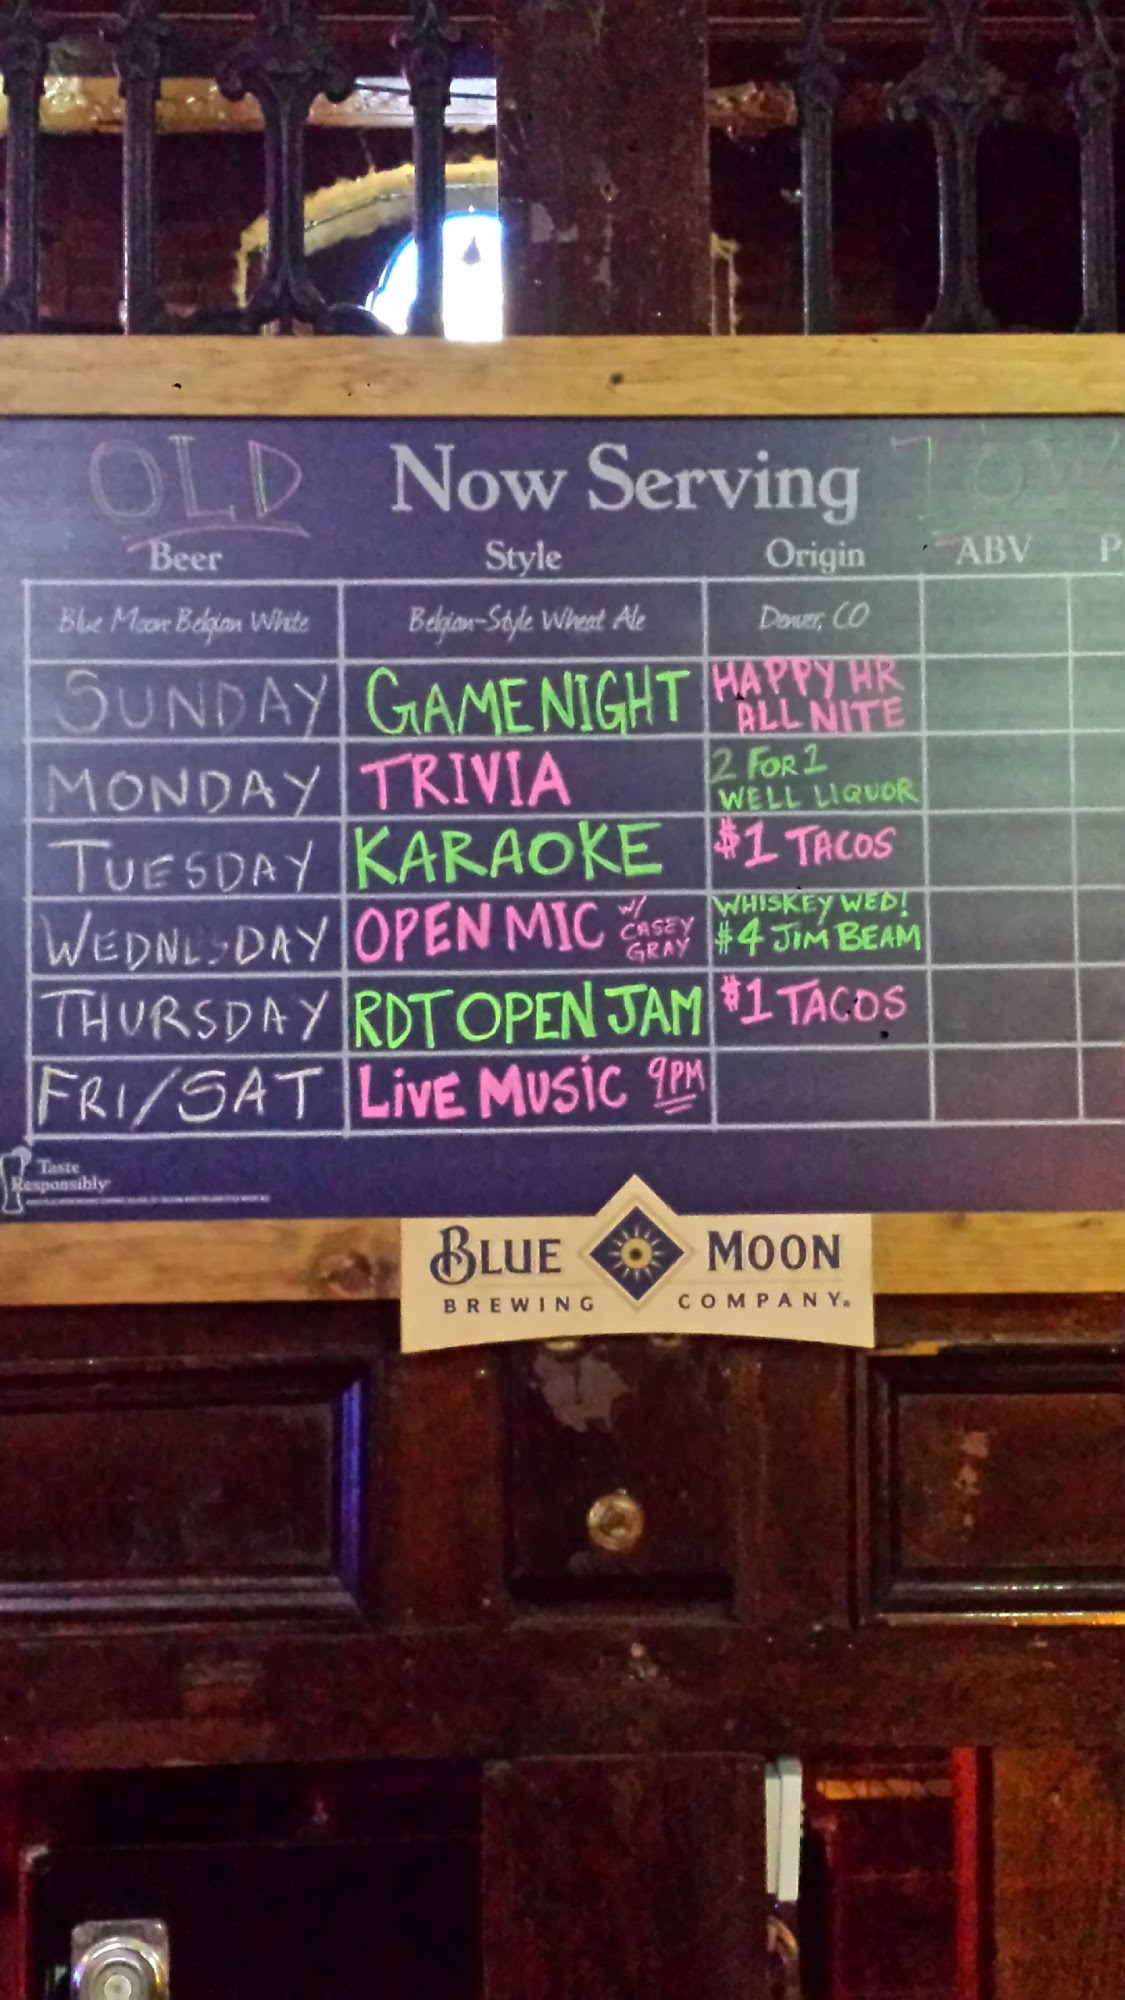 OLD Now Serving
Beer Style Origin ABV
Blue Moon Belgian White Belgian-Style Wheat Ale Denver, CO
SUNDAY GAME NIGHT HAPPY HR ALL NITE
MONDAY TRIVIA 2 FOR 1 WELL LIQUOR
TUESDAY KARAOKE $1 TACOS
WEDNESDAY OPEN MIC W/ CASEY GRAY WHISKEY WED! $4 JIM BEAM
THURSDAY RDT OPEN JAM $1 TACOS
FRI/SAT LIVE MUSIC 9PM
Taste
Responsibly
BLUE MOON
BREWING COMPANY